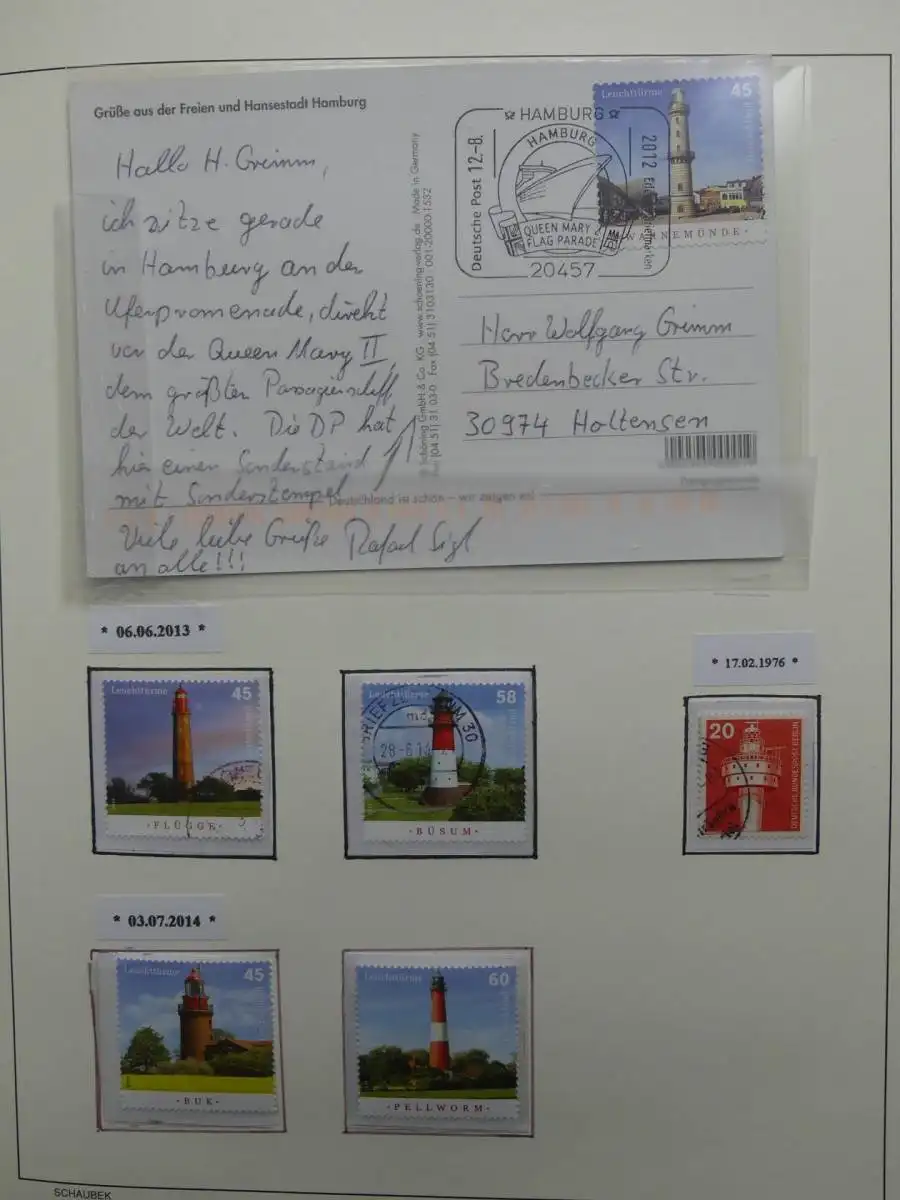 Grüße aus der Freien und Hansestadt Hamburg
Hallo H. Grimm,
ich sitze gerade
in Hamburg an der
Uferpromenade, direkt
vor der Queen Mary II,
dem größten Passagierschiff
der Welt. Die DP hat
hier einen Sonderstand
mit Sonderstempel
Viele liebe Grüße Rafael Sigl
an alle!!!
Deutschland ist schön – wir zeigen es!
© Schöning GmbH & Co. KG · www.schoening-verlag.de Made in Germany
Tel. (04 51) 31 03-0 Fax (04 51) 3103130 · 001-20000-1532
Leuchttürme 45
WARNEMÜNDE
HAMBURG
HAMBURG
QUEEN MARY 2
FLAG PARADE
20457
Deutsche Post 12.-8.
2012
Herr Wolfgang Grimm
Bredenbecker Str.
30974 Holtensen
* 06.06.2013 *
* 17.02.1976 *
Leuchttürme 45
· FLÜGGE ·
Leuchttürme 58
28-6.1
30
· BÜSUM ·
20
DEUTSCHE BUNDESPOST BERLIN
* 03.07.2014 *
Leuchttürme 45
· BUK ·
Leuchttürme 60
· PELLWORM ·
SCHAUBEK